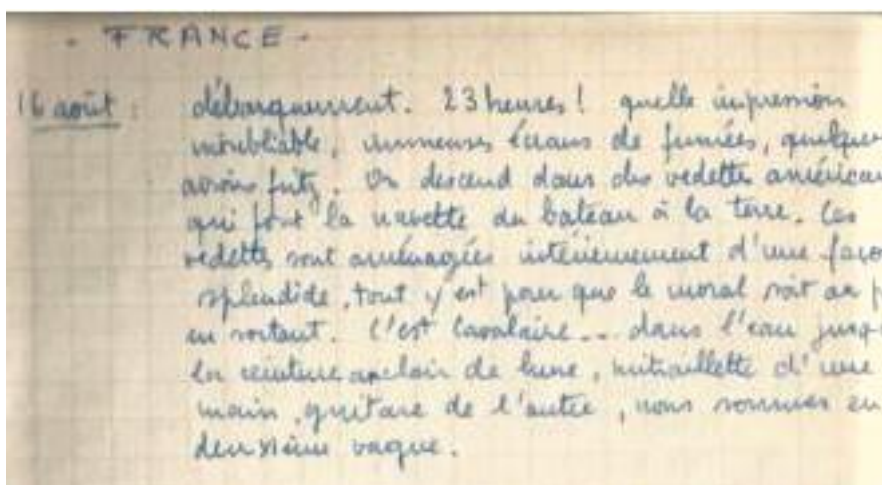 - FRANCE -
16 août : débarquement. 23 heures ! quelle impression
inoubliable, immenses écrans de fumées, quelques
avions fritz. On descend dans des vedettes américai
qui font la navette du bateau à la terre. Ces
vedettes sont aménagées intérieurement d'une faço
splendide, tout y est pour que le moral soit au p
en sortant. C'est Cavalaire... dans l'eau jusqu
la ceinture au clair de lune, mitraillette d'une
main, guitare de l'autre, nous sommes en
deuxième vague.